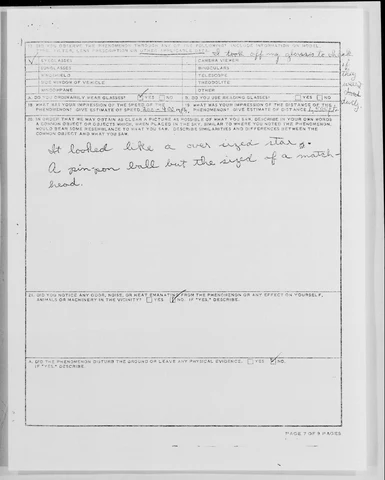 17. DID YOU OBSERVE THE PHENOMENON THROUGH ANY OF THE FOLLOWING? INCLUDE INFORMATION ON MODEL,
I took off my glasses to
EYEGLASSES
CAMERA VIEWER
SUNGLASSES
BINOCULARS
WINDSHIELD
TELESCOPE
SIDE WINDOW OF VEHICLE
THEODOLITE
WINDOWPANE
OTHER
A. DO YOU ORDINARILY WEAR GLASSES? YES NO
B. DO YOU USE READING GLASSES? YES NO
WHAT WAS YOUR IMPRESSION OF THE SPEED OF THE PHENOMENON? GIVE ESTIMATE OF SPEED
WHAT WAS YOUR IMPRESSION OF THE DISTANCE OF THE PHENOMENON? GIVE ESTIMATE OF DISTANCE
20. IN ORDER THAT WE MAY OBTAIN AS CLEAR A PICTURE AS POSSIBLE OF WHAT YOU SAW, DESCRIBE IN YOUR OWN WORDS
A COMMON OBJECT OR OBJECTS WHICH, WHEN PLACED IN THE SKY, SIMILAR TO WHERE YOU NOTED THE PHENOMENON,
WOULD BEAR SOME RESEMBLANCE TO WHAT YOU SAW. DESCRIBE SIMILARITIES AND DIFFERENCES BETWEEN THE
COMMON OBJECT AND WHAT YOU SAW.
It looked like a over sized star.
A pinpon ball but the sized of a match
head.
21. DID YOU NOTICE ANY ODOR, NOISE, OR HEAT EMANATING FROM THE PHENOMENON OR ANY EFFECT ON YOURSELF,
ANIMALS OR MACHINERY IN THE VICINITY? YES NO. IF "YES," DESCRIBE.
DID THE PHENOMENON DISTURB THE GROUND OR LEAVE ANY PHYSICAL EVIDENCE. YES NO.
IF "YES," DESCRIBE
PAGE 7 OF 9 PAGES